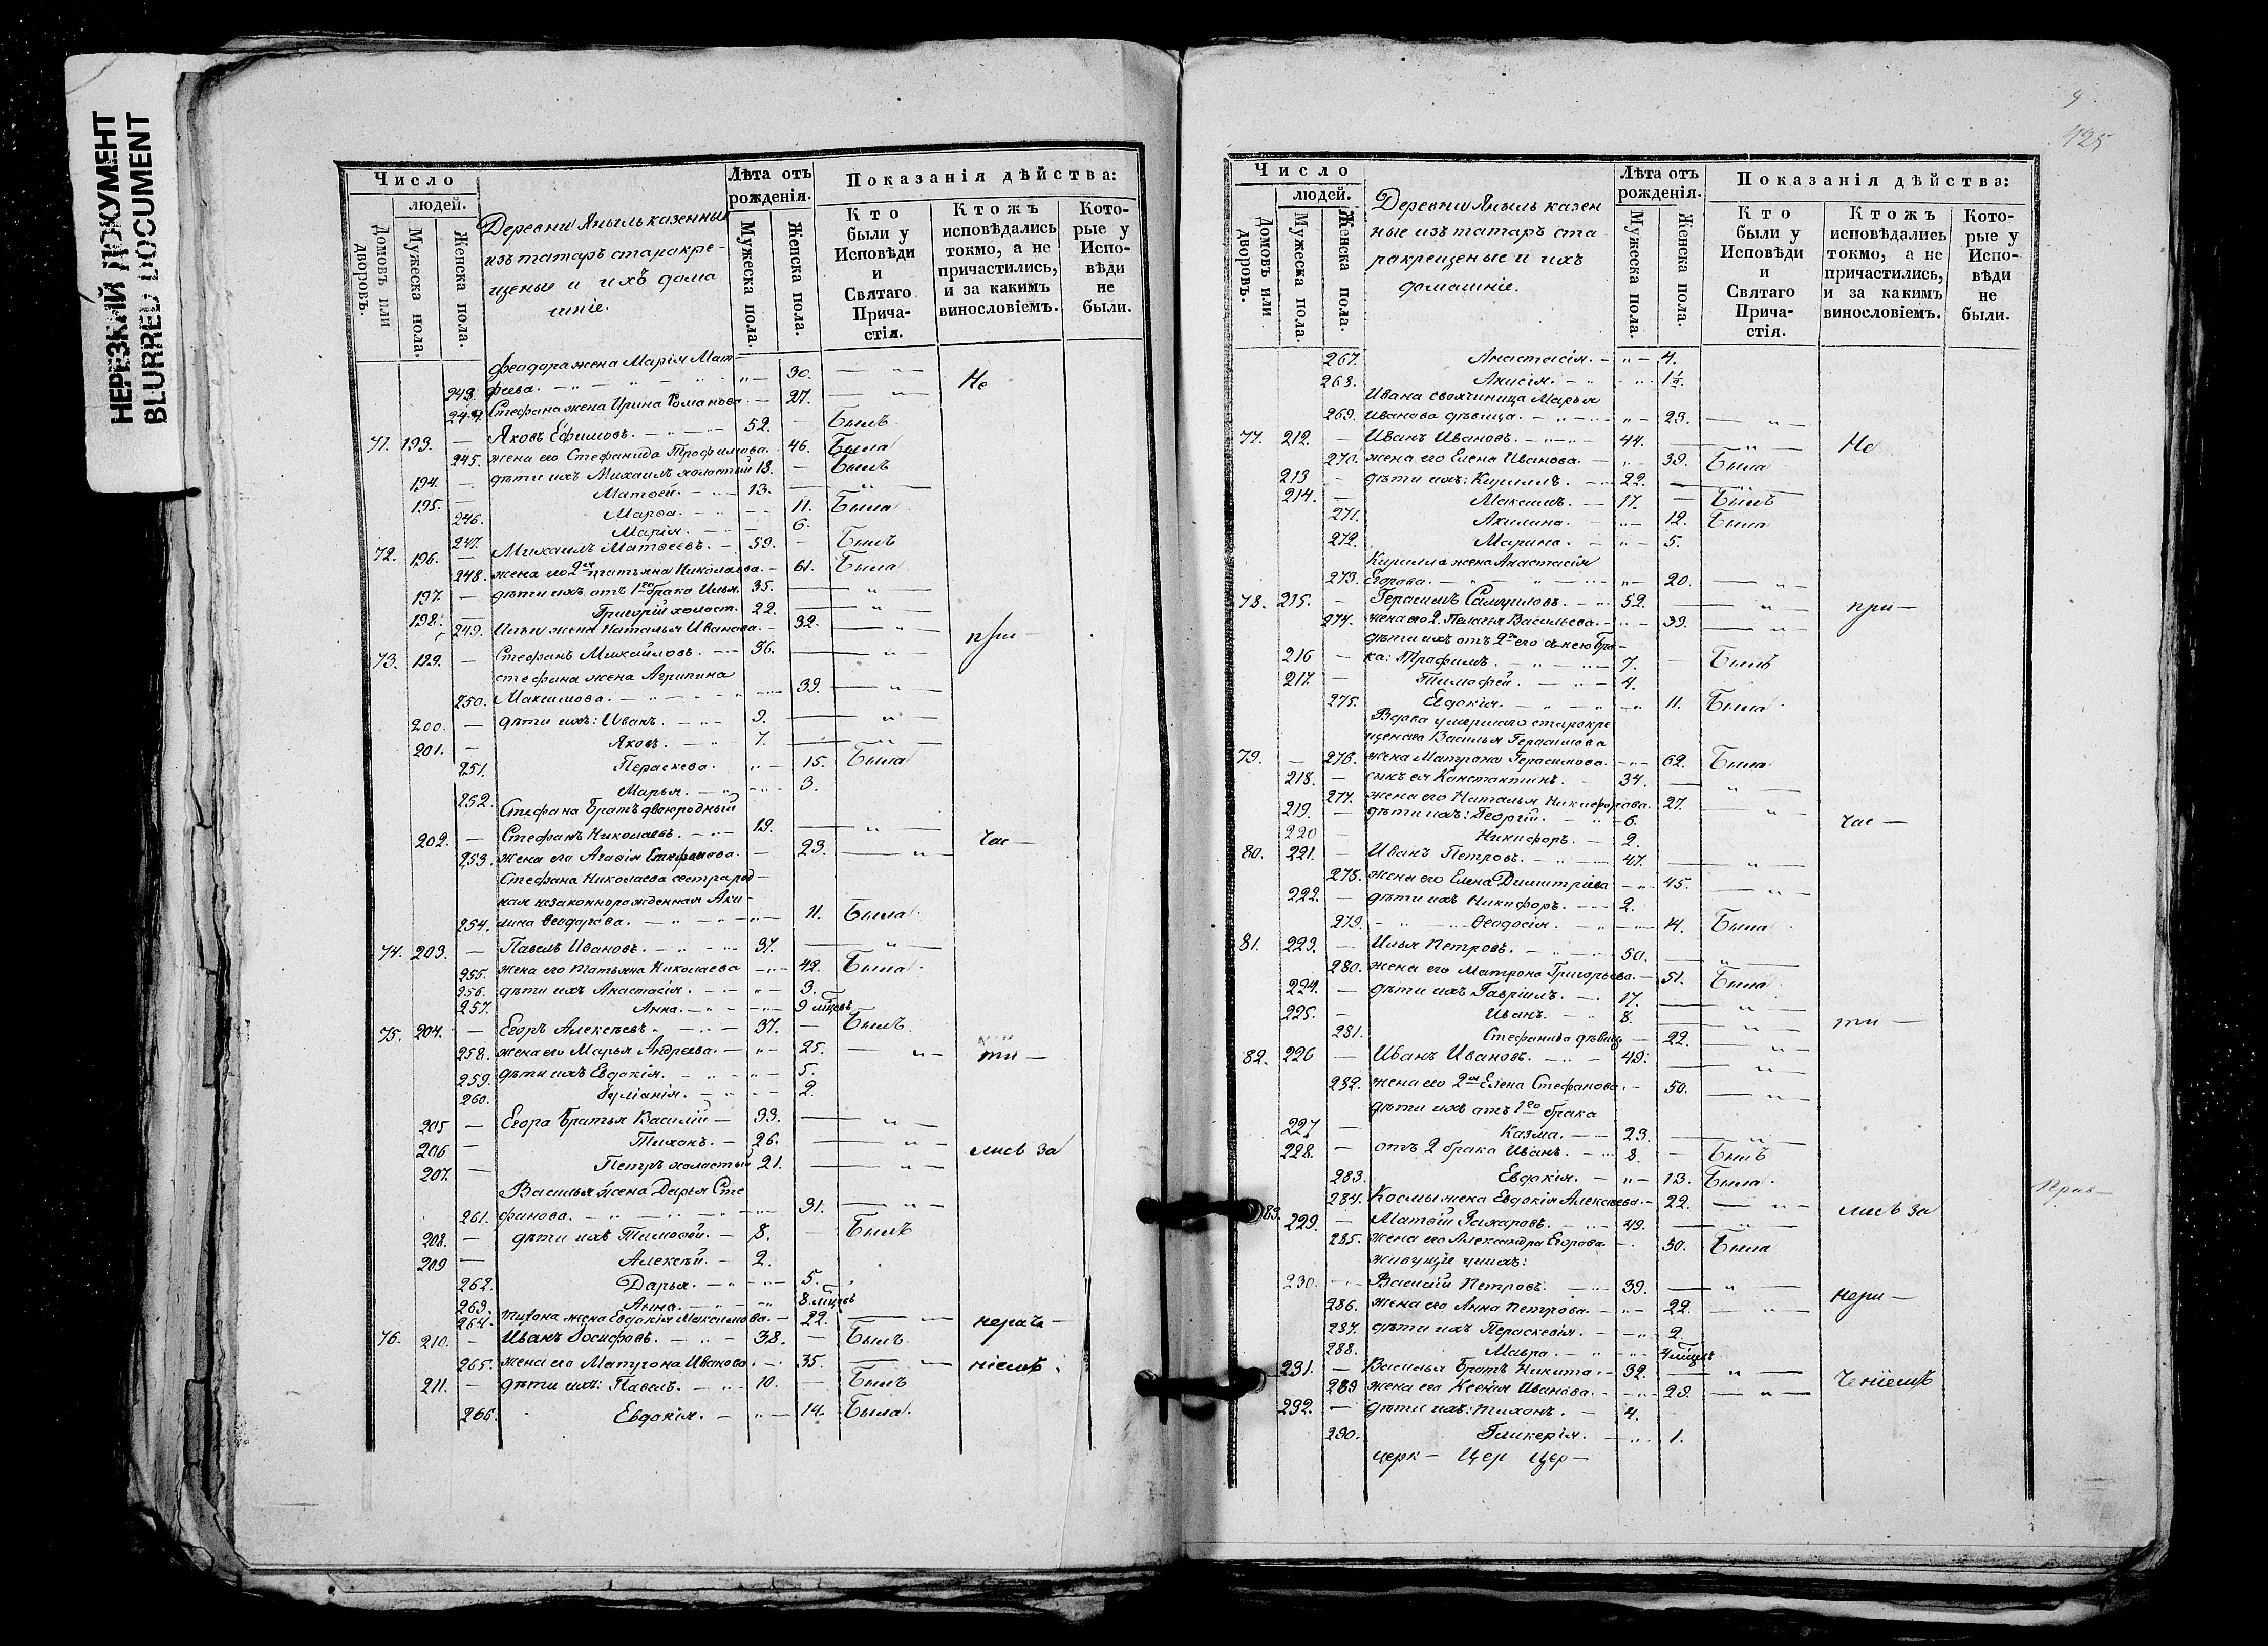 НЕРЕЗКИЙ ДОКУМЕНТ
BLURRED DOCUMENT
Число
людей.
Домовъ или дворовъ.
Мужеска пола.
Женска пола.
Деревни Яныль казенные
изъ татаръ старокре-
щеные и ихъ дома
шніе.
Лѣта отъ рожденія.
Мужеска пола.
Женска пола.
Показанія дѣйства:
Кто были у Исповѣди и Святаго Прича-стія.
Ктожъ исповѣдались токмо, а не причастились, и за какимъ винословіемъ.
Кото-рые у Испо-вѣди не были.
Феодора жена Марія Мат-
243. фѣева. 30. Не
244. Стефана жена Ирина Романова. 27.
71. 193. — Яковъ Ефимовъ. 52. Былъ
245. жена его Стефанида Трофимова. 46. Была
194. — дѣти ихъ Михаилъ холостый 18. — Былъ
195. — Матѳей. 13.
246. Марѳа. 11. Была
247. Марія. 6.
72. 196. — Михаилъ Матвеевъ. 59. — Былъ
248. жена его 2ая Татьяна Николаева. 61. Была
197. — дѣти ихъ отъ 1го брака Илья. 35.
198. — Григорій холост. 22.
249. Ильи жена Наталья Иванова. 32. при—
73. 199. — Стефанъ Михайловъ. 36.
Стефана жена Агрипина
250. Максимова. 39.
200. — дѣти ихъ: Иванъ. 9.
201. — Яковъ. 7.
251. Параскева. 15. Была
252. Марья. 3.
Стефана братъ двоюродный
202. — Стефанъ Николаевъ. 19. час—
253. жена его Агафія Стефанова. 23.
Стефана Николаева сестра род—
ная незаконнорожденная Аки-
254. лина Ѳеодорова. 11. Была
74. 203. — Павелъ Ивановъ. 37.
255. жена его Татьяна Николаева 42. Была
256. дѣти ихъ Анастасія. 3.
257. Анна. 9 мѣцевъ
75. 204. — Егоръ Алексѣевъ. 37. — Былъ
258. жена его Марья Андреева. 25. ти—
259. дѣти ихъ Евдокія. 5.
260. Іуліанія. 2.
205 — Егора братья Василій — 33.
206 — Тихонъ. 26. лись за
207. — Петръ холостый 21.
Василья жена Дарья Сте
261. фанова. 31.
208. — дѣти ихъ Тимофей. 8. — Былъ
209 — Алексѣй. 2.
262. Дарья. 5.
263. Анна. 8 мѣцевъ
264. Тихона жена Евдокія Максимова. 22. нераче—
76. 210. — Иванъ Іосифовъ. 38. — Былъ
265. жена его Матрона Иванова. 35. ніемъ.
211. — дѣти ихъ: Павелъ. 10. — Былъ
266. Евдокія. 14. Была.
425
Число
людей.
Домовъ или дворовъ.
Мужеска пола.
Женска пола.
Деревни Яныль казен
ные изъ татаръ ста
рокрещеные и ихъ
домашніе.
Лѣта отъ рожденія.
Мужеска пола.
Женска пола.
Показанія дѣйства:
Кто были у Исповѣди и Святаго Прича-стія.
Ктожъ исповѣдались токмо, а не причастились, и за какимъ винословіемъ.
Кото-рые у Испо-вѣди не были.
267. Анастасія. 4.
268. Анисія. 1½.
Ивана своячиница Марья
269. Иванова дѣвица. 23.
77. 212. — Иванъ Ивановъ. 44. Не
270. жена его Елена Иванова. 39. Была
213 — дѣти ихъ: Кириллъ. 22.
214. — Максимъ. 17. — Былъ
271. Акилина. 12. Была
272. Марина. 5.
Кирилла жена Анастасія
273. Егорова. 20.
78. 215. — Герасимъ Самуиловъ. 52. при—
274. жена его 2. Пелагья Васильева. 39.
дѣти ихъ отъ 2го его съ нею бра-
216 — ка: Трофимъ. 7. — Былъ
217. — Тимофей. 4.
275. Евдокія. 11. Была
Вдова умершаго старокре
щенаго Василья Герасимова
79. — 276. жена Матрона Герасимова. 62. Была
218. — сынъ ея Константинъ. 34.
277. жена его Наталья Никифорова. 27.
219. — дѣти ихъ: Георгій. 6. час—
220 — Никифоръ. 2.
80. 221. — Иванъ Петровъ. 47.
278. жена его Елена Димитріева 45.
222. — дѣти ихъ Никифоръ. 2.
279. Ѳеодосія. 14. Была
81. 223. — Илья Петровъ. 50.
280. жена его Матрона Григорьева. 51. Была
224. — дѣти ихъ Гавріилъ. 17.
225. — Иванъ. 8. ти—
281. Стефанида дѣвиц. 22.
82. 226 — Иванъ Ивановъ. 49.
282. жена его 2ая Елена Стефанова. 50.
дѣти ихъ отъ 1го брака
227 — Козма. 23.
228. — отъ 2 брака Иванъ. 8. — Былъ
283. Евдокія. 13. Была.
284. Космы жена Евдокія Алексѣева. 22. лись за
83. 229. — Матѳій Захаровъ. 49.
285. жена его Александра Егорова. 50. Была
живущіе у нихъ:
230. Василій Петровъ. 39. нера—
286. жена его Анна Петрова. 22.
287. дѣти ихъ Параскевія. 2.
288. Мавра. 4 мѣцевъ
231. — Василья братъ Никита. 32. ченіемъ
289 жена его Ксенія Иванова. 29.
232. — дѣти ихъ: Тихонъ. 4.
290. Гликерія. 1.
церк— Цер Цер—